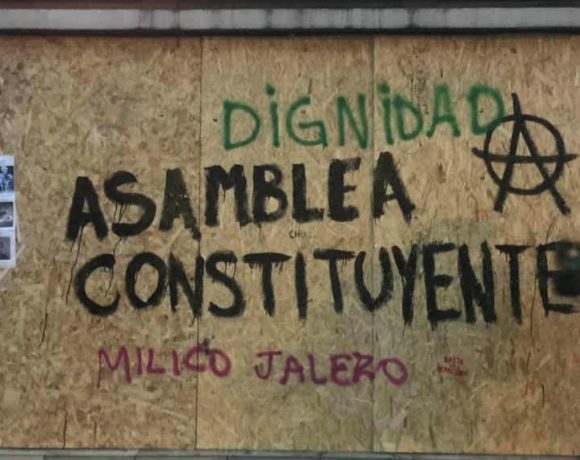 DIGNIDAD
ASAMBLEA
CONSTITUYENTE
MILICO JALERO